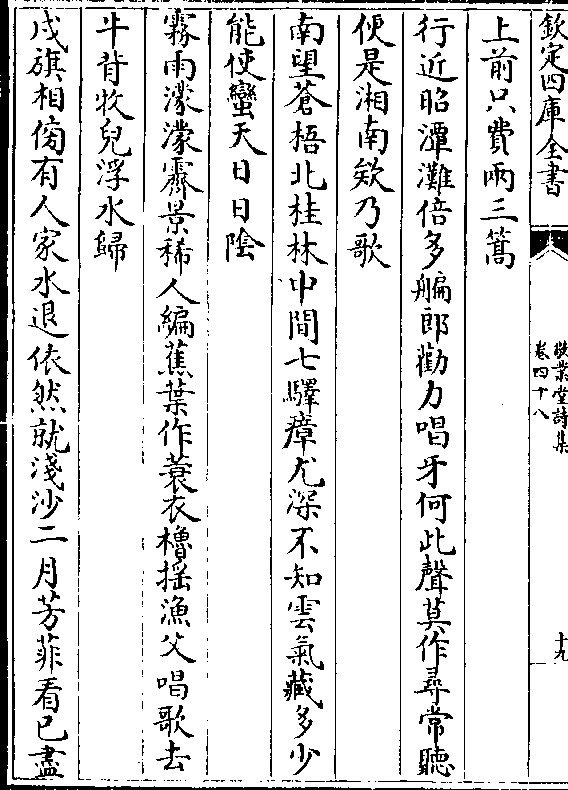 欽定四庫全書
敬業堂詩集
卷四十八
十九
上前只費兩三篙
行近昭潭灘倍多艑郎勸力唱牙何此聲莫作尋常聽
便是湘南欸乃歌
南望蒼梧北桂林中間七驛瘴尤深不知雲氣藏多少
能使蠻天日日陰
霧雨濛濛霽景稀人編蕉葉作蓑衣櫓摇漁父唱歌去
牛背牧兒浮水歸
戍旗相傍有人家水退依然就淺沙二月芳菲看已盡